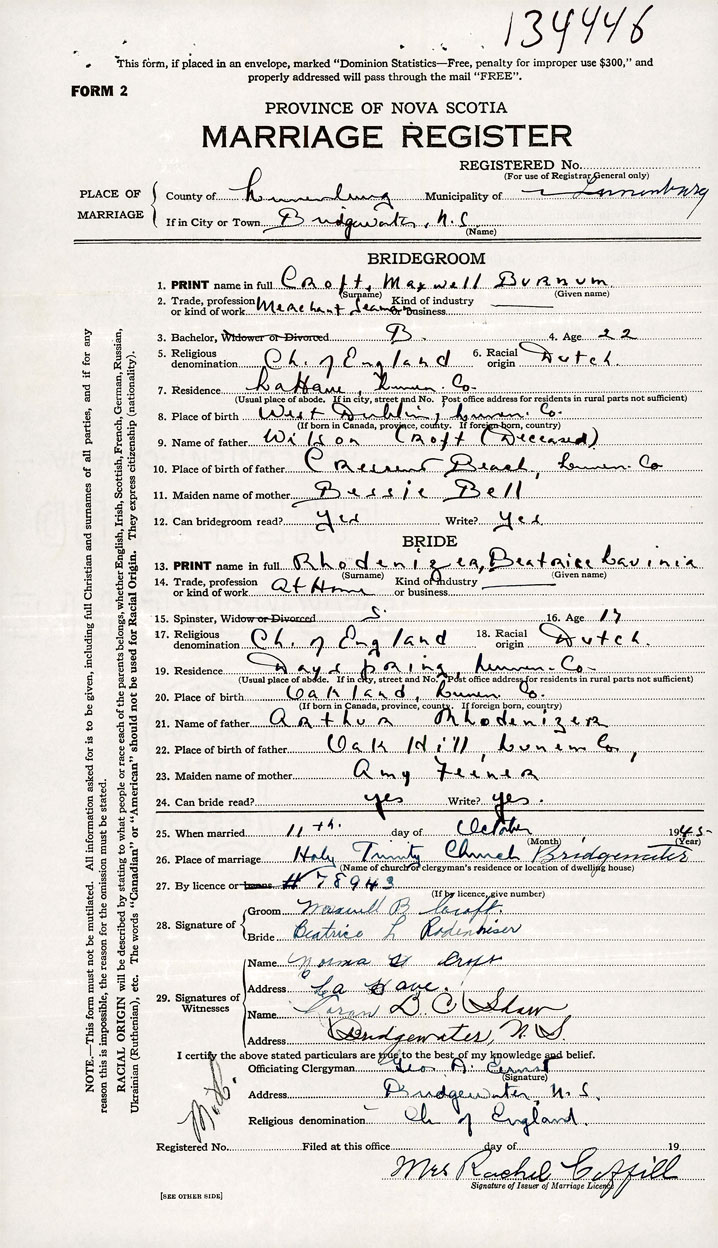 134446
This form, if placed in an envelope, marked "Dominion Statistics—Free, penalty for improper use $300," and
properly addressed will pass through the mail "FREE".
FORM 2
PROVINCE OF NOVA SCOTIA
MARRIAGE REGISTER
REGISTERED No.
(For use of Registrar General only)
PLACE OF MARRIAGE
County of Lunenburg Municipality of Lunenburg
If in City or Town Bridgewater, N.S.
(Name)
BRIDEGROOM
1. PRINT name in full Croft, Maxwell Burnum
(Surname) (Given name)
2. Trade, profession or kind of work Merchant Seaman Kind of industry or business
3. Bachelor, Widower or Divorced B. 4. Age 22
5. Religious denomination Ch. of England 6. Racial origin Dutch.
7. Residence LaHave, Lunen. Co.
(Usual place of abode. If in city, street and No. Post office address for residents in rural parts not sufficient)
8. Place of birth West Dublin, Lunen. Co.
(If born in Canada, province, county. If foreign born, country)
9. Name of father Wilson Croft (Deceased)
10. Place of birth of father Crescent Beach, Lunen. Co
11. Maiden name of mother Bessie Bell
12. Can bridegroom read? Yes Write? Yes
BRIDE
13. PRINT name in full Rhodenizer, Beatrice Lavinia
(Surname) (Given name)
14. Trade, profession or kind of work At Home Kind of industry or business
15. Spinster, Widow or Divorced S. 16. Age 17
17. Religious denomination Ch. of England 18. Racial origin Dutch.
19. Residence Dayspring, Lunen. Co.
(Usual place of abode. If in city, street and No. Post office address for residents in rural parts not sufficient)
20. Place of birth Oakland, Lunen. Co.
(If born in Canada, province, county. If foreign born, country)
21. Name of father Arthur Rhodenizer
22. Place of birth of father Oak Hill, Lunen Co,
23. Maiden name of mother Amy Feiner
24. Can bride read? yes Write? yes.
25. When married 11th. day of October 1945
(Month) (Year)
26. Place of marriage Holy Trinity Church Bridgewater
(Name of church or clergyman's residence or location of dwelling house)
27. By licence or banns # 78943
(If by licence, give number)
28. Signature of
Groom Maxwell B Croft.
Bride Beatrice L Rodenhiser
29. Signatures of Witnesses
Name Norma Croft
Address La Have.
Name D. C. Shaw
Address Bridgewater, N.S.
I certify the above stated particulars are true to the best of my knowledge and belief.
Officiating Clergyman Geo. D. Ernst
(Signature)
Address Bridgewater, N.S.
Religious denomination Ch of England.
Registered No. Filed at this office day of 19
Mrs Rachel Coffill
Signature of Issuer of Marriage Licence
[SEE OTHER SIDE]
NOTE.—This form must not be mutilated. All information asked for is to be given, including full Christian and surnames of all parties, and if for any
reason this is impossible, the reason for the omission must be stated.
RACIAL ORIGIN will be described by stating to what people or race each of the parents belongs, whether English, Irish, Scottish, French, German, Russian,
Ukrainian (Ruthenian), etc. The words "Canadian" or "American" should not be used for Racial Origin. They express citizenship (nationality).